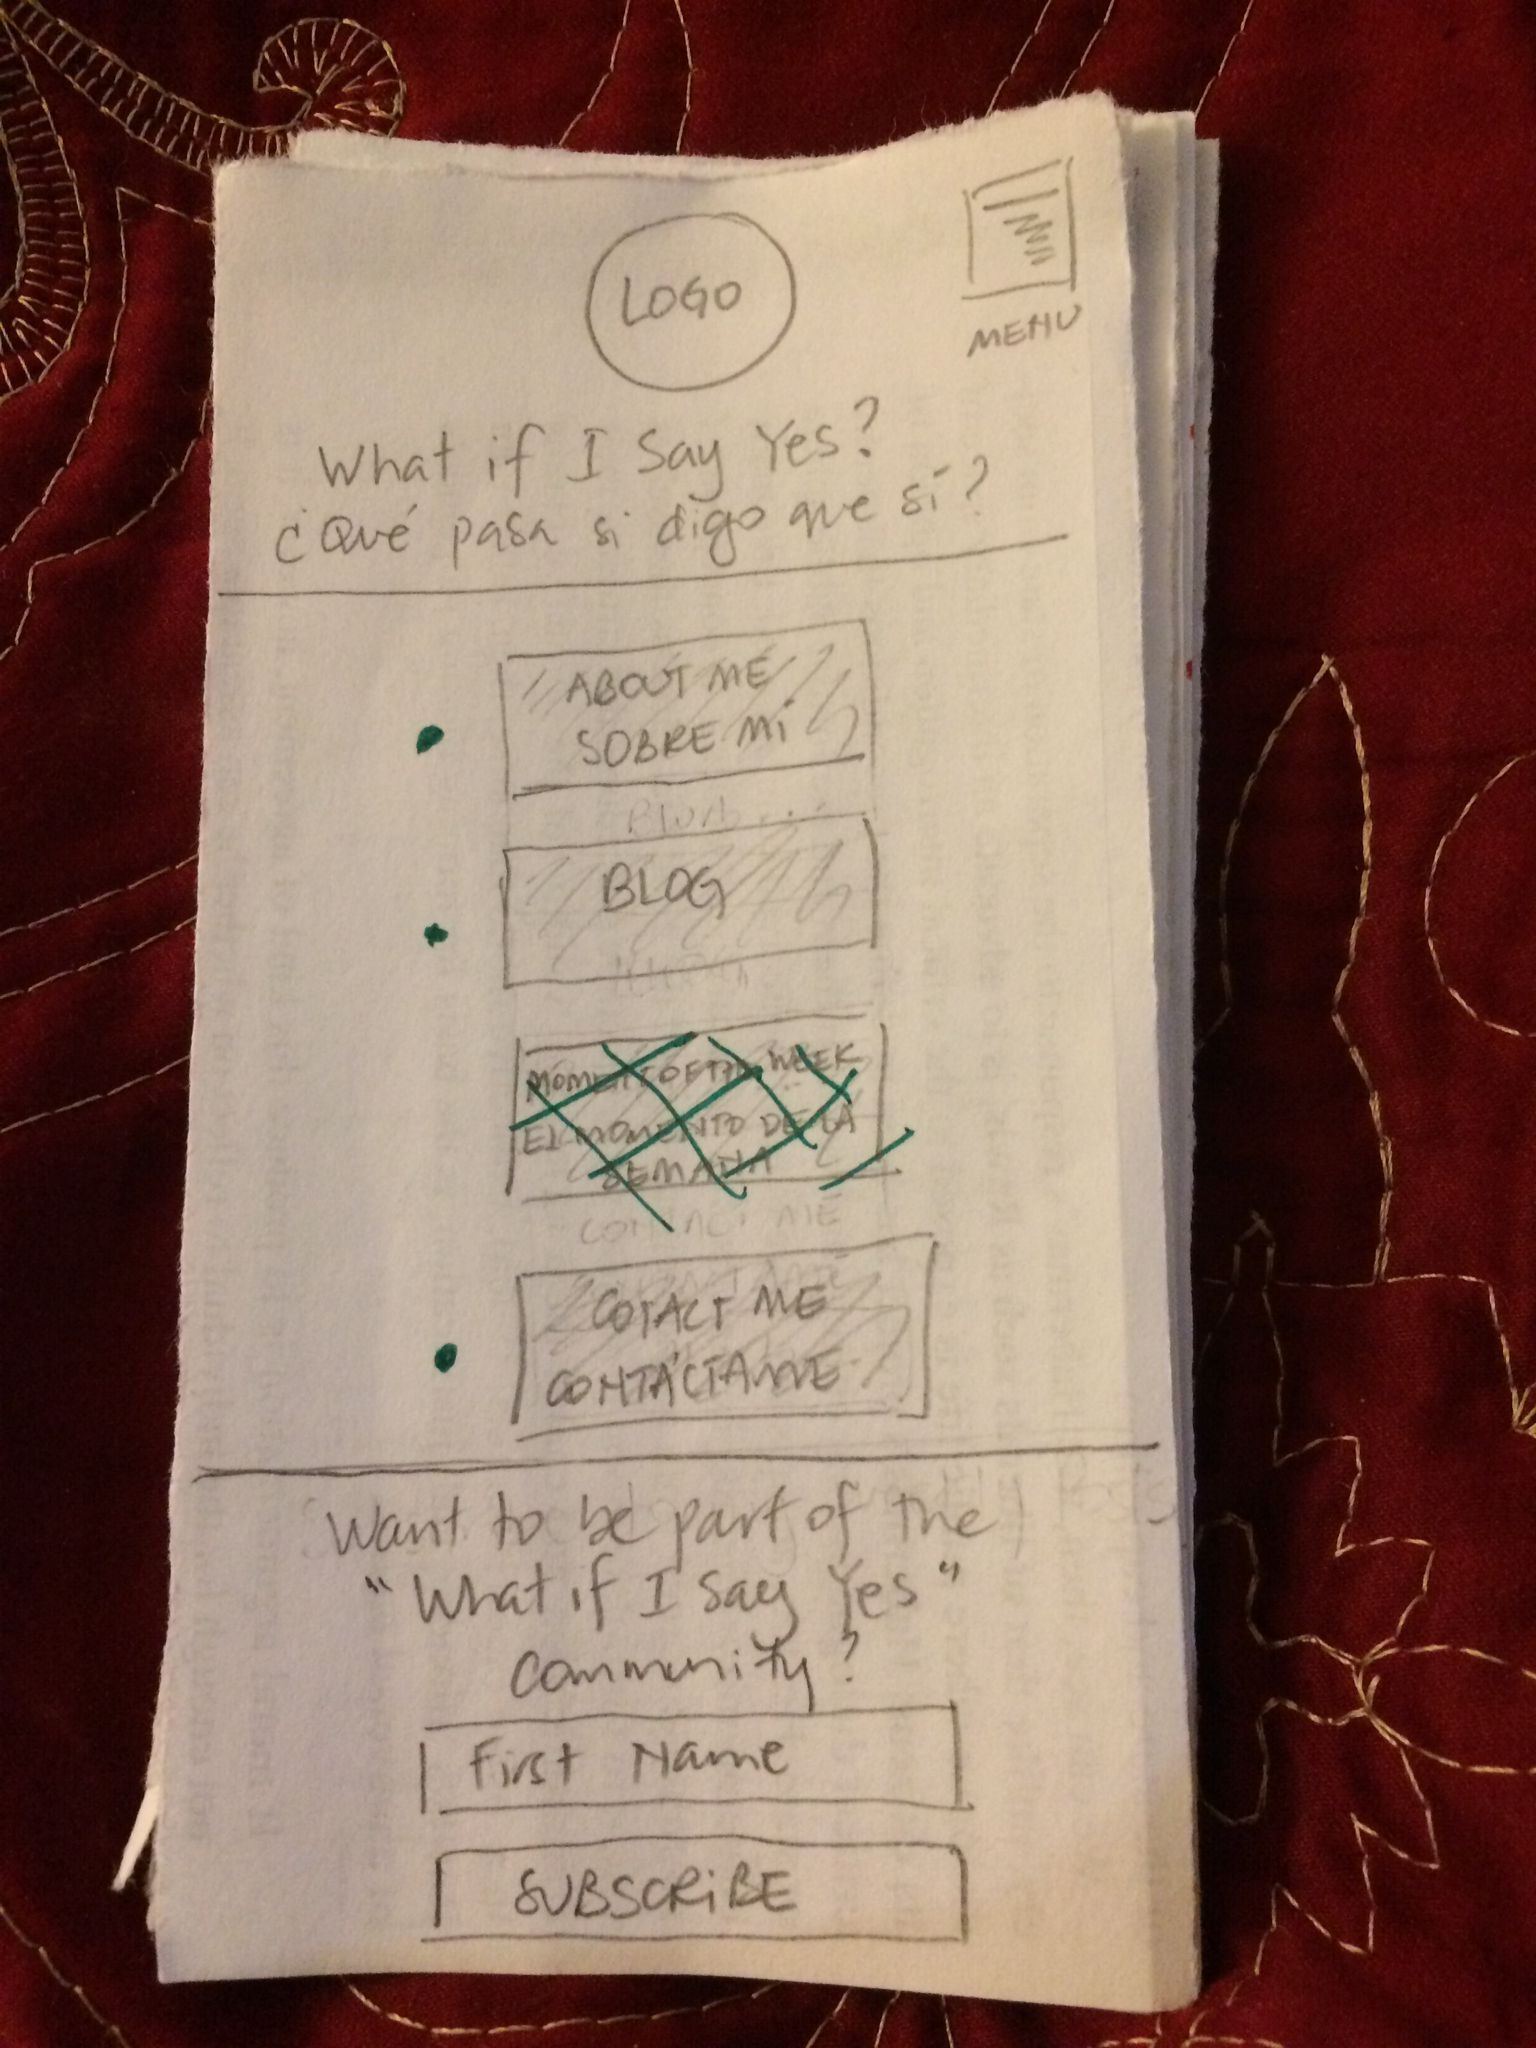 LOGO
MENU
What if I Say Yes?
¿Qué pasa si digo que sí?
ABOUT ME
SOBRE MÍ
BLOG
MOMENT OF THE WEEK
EL MOMENTO DE LA
SEMANA
CONTACT ME
COTACT ME
CONTÁCTAME
Want to be part of the
"What if I Say Yes"
community?
First Name
SUBSCRIBE